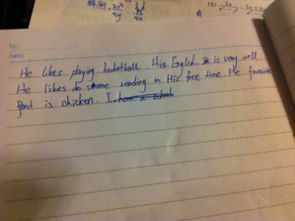 No.
Date
He likes playing basketball. His English is very well
He likes do some reading in His free time. He favourite
food is chicken.